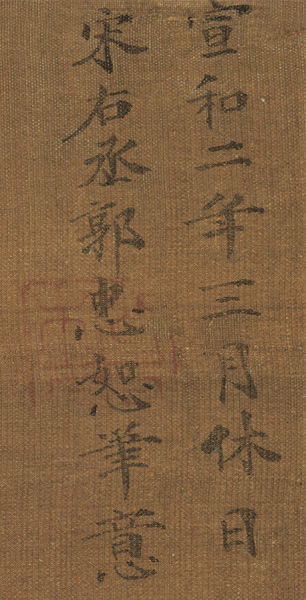 宣和二年三月休日
宋右丞郭忠恕筆意